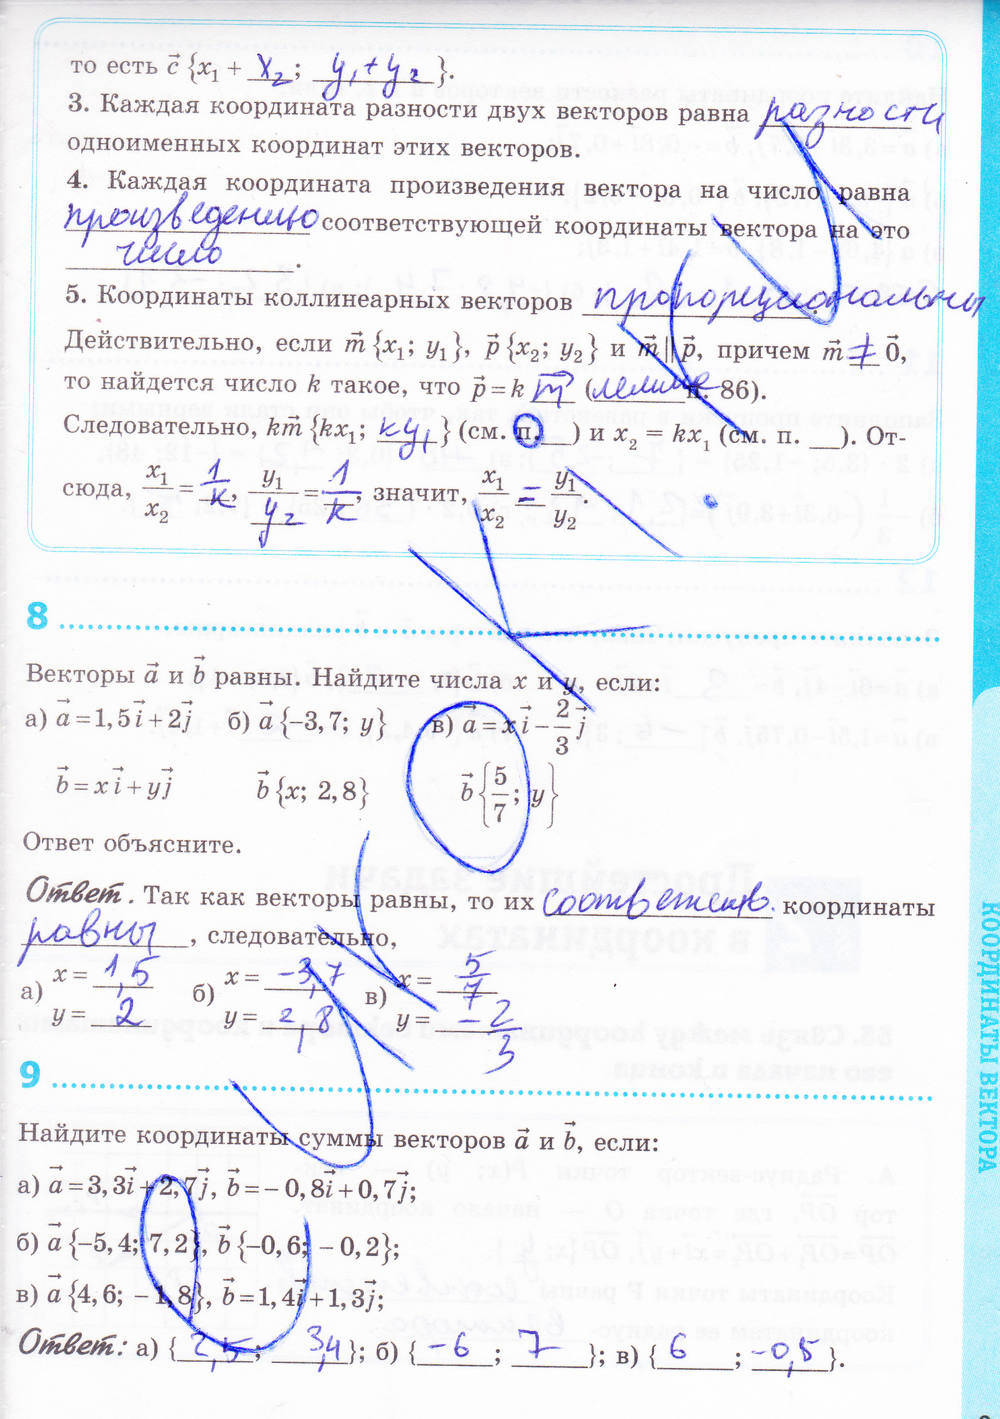 то есть c⃗ {x₁ + x₂; y₁+y₂}.
3. Каждая координата разности двух векторов равна разности
одноименных координат этих векторов.
4. Каждая координата произведения вектора на число равна
произведению соответствующей координаты вектора на это
число.
5. Координаты коллинеарных векторов пропорциональны.
Действительно, если m⃗ {x₁; y₁}, p⃗ {x₂; y₂} и m⃗ ∥ p⃗, причем m⃗ ≠ 0⃗,
то найдется число k такое, что p⃗ = k m⃗ (лемма п. 86).
Следовательно, km⃗ {kx₁; ky₁} (см. п. ) и x₂ = kx₁ (см. п. __). От-
сюда, x₁/x₂ = 1/k, y₁/y₂ = 1/k, значит, x₁/x₂ = y₁/y₂.
8
Векторы a⃗ и b⃗ равны. Найдите числа x и y, если:
а) a⃗ = 1,5i⃗ + 2j⃗ б) a⃗ {–3,7; y} в) a⃗ = xi⃗ – 2/3 j⃗
b⃗ = xi⃗ + yj⃗ b⃗ {x; 2,8} b⃗ {5/7; y}
Ответ объясните.
Ответ. Так как векторы равны, то их соответств. координаты
равны, следовательно,
а) x = 1,5 б) x = –3,7 в) x = 5/7
y = 2 y = 2,8 y = –2/3
9
Найдите координаты суммы векторов a⃗ и b⃗, если:
а) a⃗ = 3,3i⃗ + 2,7j⃗, b⃗ = – 0,8i⃗ + 0,7j⃗;
б) a⃗ {–5,4; 7,2}, b⃗ {–0,6; – 0,2};
в) a⃗ {4,6; –1,8}, b⃗ = 1,4i⃗ + 1,3j⃗;
Ответ: а) {2,5; 3,4}; б) {–6; 7}; в) {6; –0,5}.
КООРДИНАТЫ ВЕКТОРА